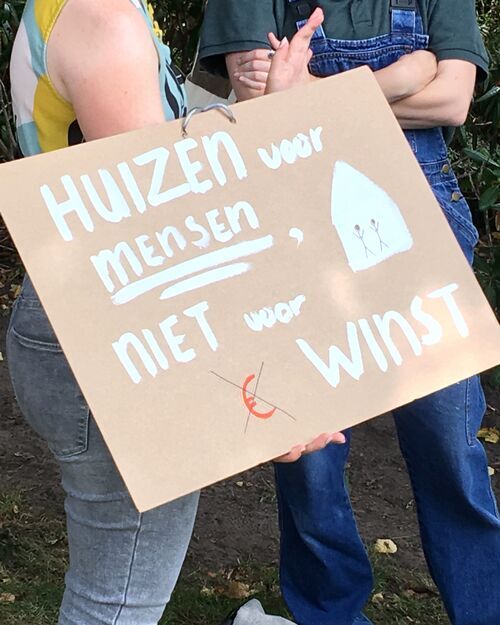 HUIZEN voor
MENSEN,
NIET voor
WINST
€